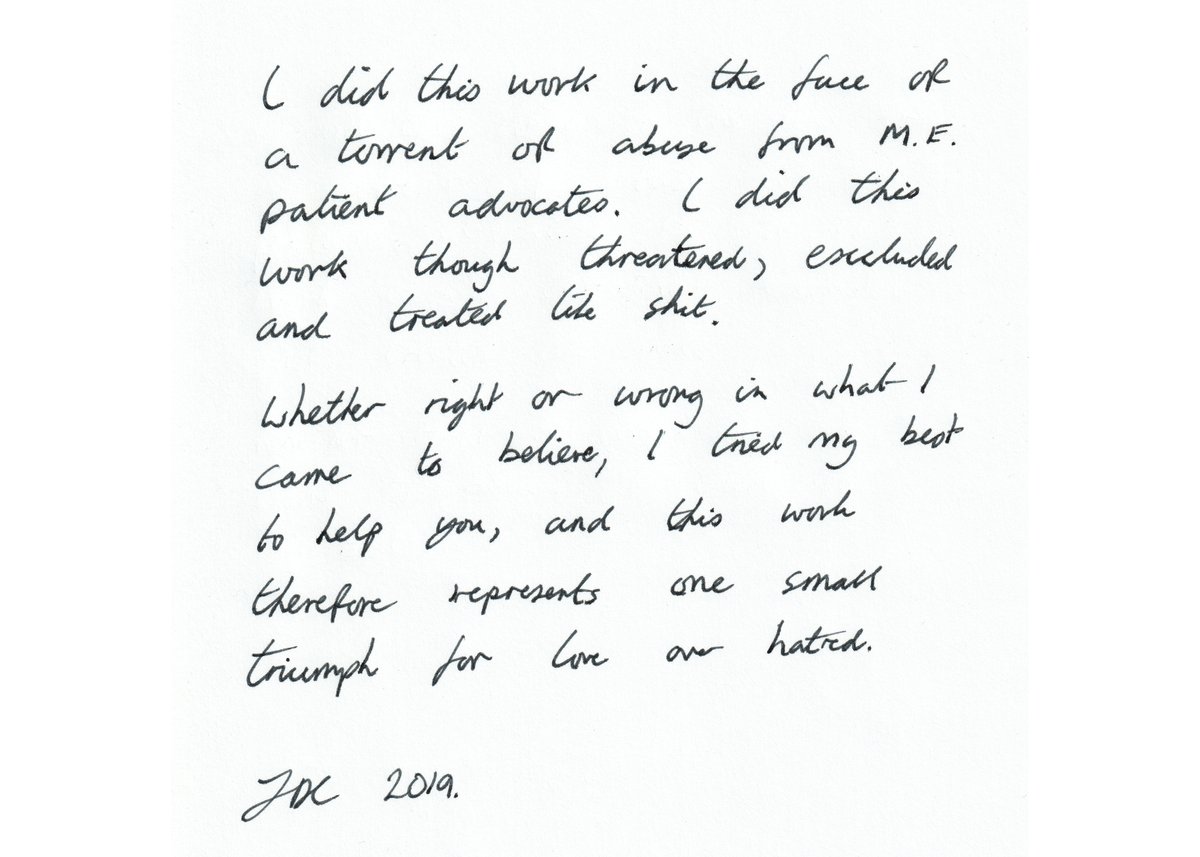 I did this work in the face of
a torrent of abuse from M.E.
patient advocates. I did this
work though threatened, excluded
and treated like shit.
Whether right or wrong in what I
came to believe, I tried my best
to help you, and this work
therefore represents one small
triumph for love over hatred.
JDC 2019.